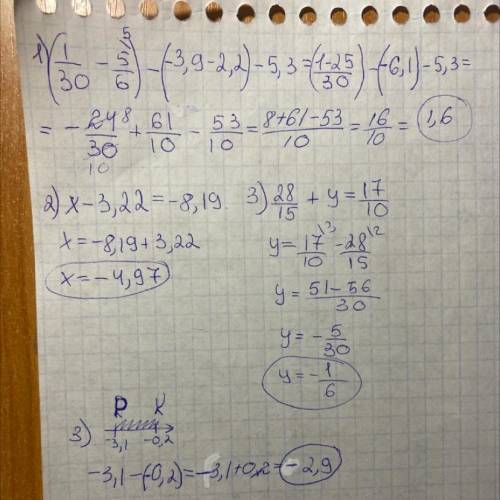 1) (1/30 - 5/6 \5) - (-3,9-2,2) - 5,3 = (1-25/30) - (-6,1) - 5,3 =
= - 24 8/30 10 + 61/10 - 53/10 = 8+61-53/10 = 16/10 = 1,6
2) x - 3,22 = -8,19
x = -8,19 + 3,22
x = -4,97
3) 28/15 + y = 17/10
y = 17/10 \3 - 28/15 \2
y = 51-56/30
y = - 5/30
y = - 1/6
P K
3) -3,1 -0,2
-3,1-(-0,2) = -3,1+0,2 = -2,9